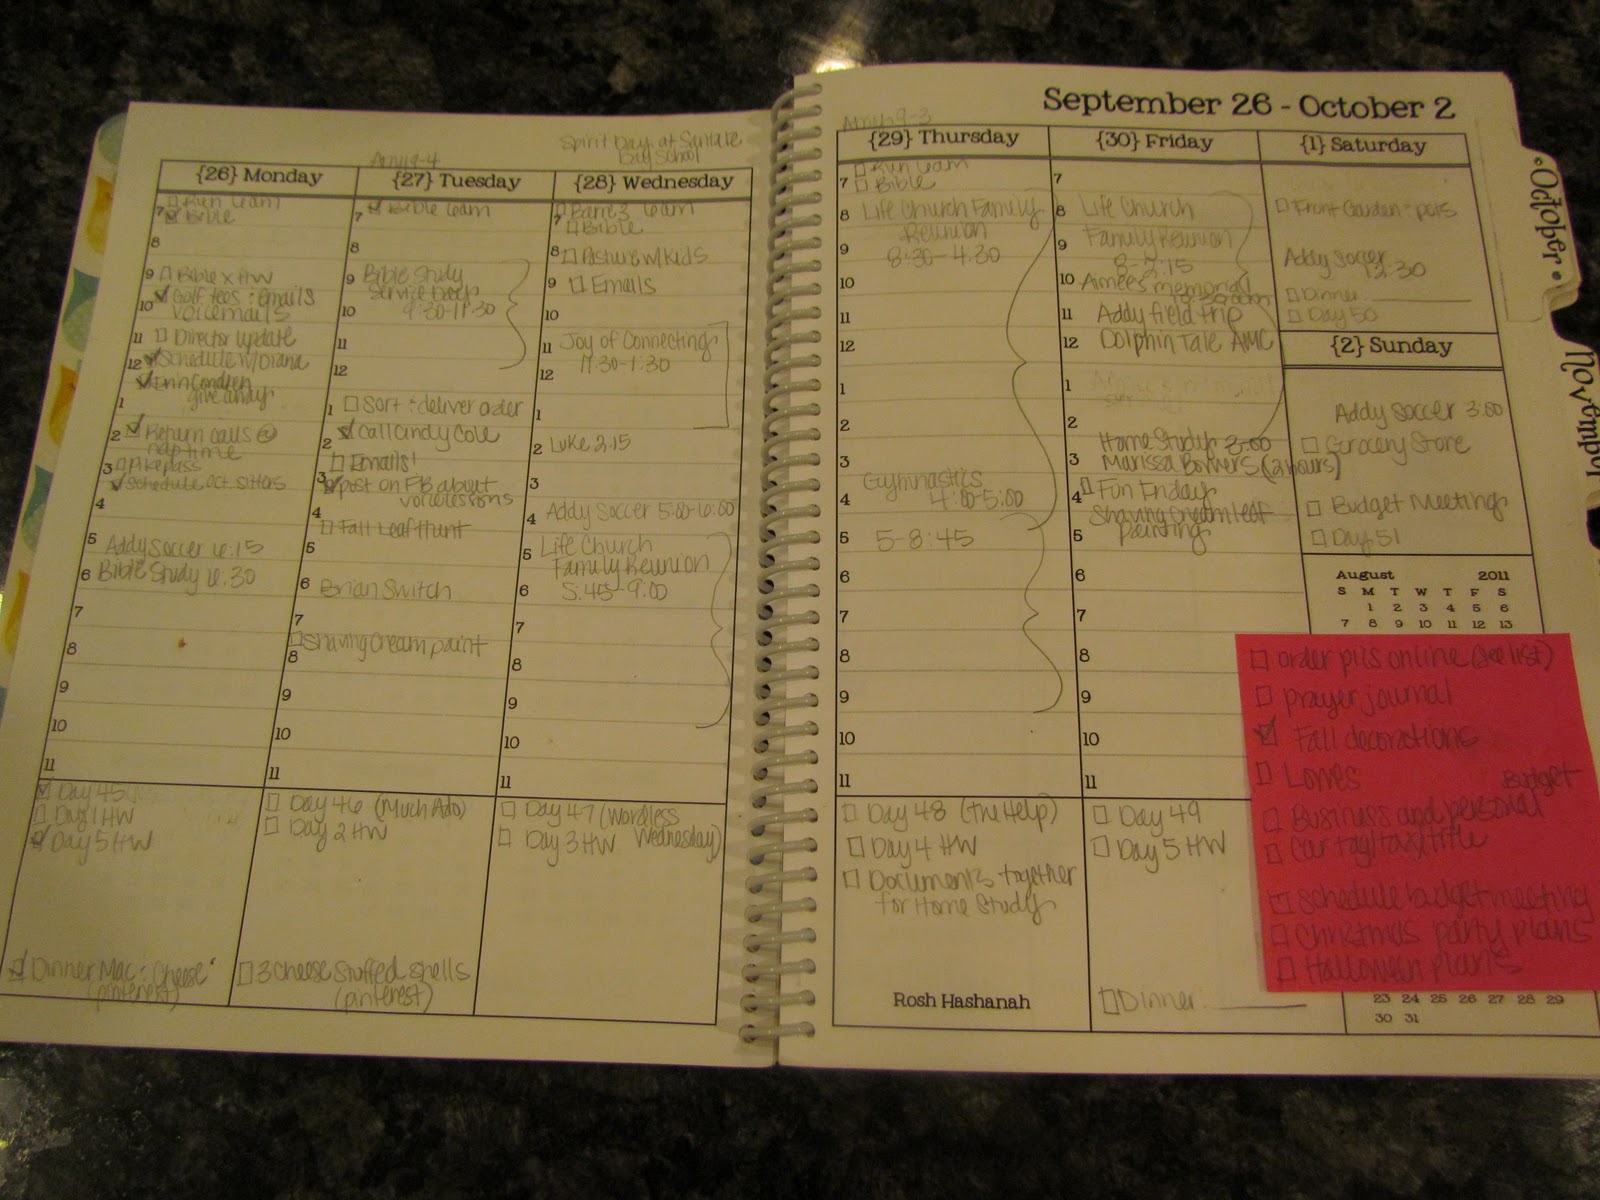 Spirit Day at
Day School
{26} Monday
Run 6am
7 Bible
8
9 Bible x HW
10 Golf tees : emails
voicemails
11 Director update
12 Schedule w/ Diana
Erin Condren
give candy
1
2 Return calls @
nap time
3 Pikepass
Schedule Oct sitters
4
5 Addy Soccer 6:15
6 Bible Study 6:30
7
8
9
10
11
Day 45
Day 1 HW
Day 5 HW
Dinner Mac : Cheese
(pinterest)
9-4
{27} Tuesday
7 Bible 6am
8
9 Bible Study
Service Day
10 9:30-11:30
11
12
1 Sort : deliver order
2 Call Cindy Cole
Emails!
3 post on FB about
voice lessons
4
Fall Leaf Hunt
5
6 Brian Switch
7
Shaving cream paint
8
9
10
11
Day 46 (Much Ado)
Day 2 HW
3 cheese stuffed shells
(pinterest)
{28} Wednesday
Barre3 6am
7 Bible
8 Pasture w/ kids
9 Emails
10
11 Joy of Connecting
11:30-1:30
12
1
2 Luke 2:15
3
4 Addy Soccer 5:00-6:00
5 Life Church
Family Reunion
6 5:45-9:00
7
8
9
10
11
Day 47 (Wordless
Wednesday)
Day 3 HW
September 26 - October 2
9-3
{29} Thursday
Run 6am
7 Bible
8 Life Church Family
Reunion
9 8:30-4:30
10
11
12
1
2
3
Gymnastics
4 4:00-5:00
5 5-8:45
6
7
8
9
10
11
Day 48 (The Help)
Day 4 HW
Documents together
for Home Study
Rosh Hashanah
{30} Friday
7
8 Life Church
9 Family Reunion
8-2:15
10 Aimee's memorial
11 Addy field trip
12 Dolphin Tale AMC
1
2
Home Study 3:00
3 Marissa Bowers (2 hours)
4 Fun Friday
Shaving cream leaf
5 painting
6
7
8
9
10
11
Day 49
Day 5 HW
Dinner
{1} Saturday
Front Garden : pots
Addy Soccer
12:30
Dinner
Day 50
{2} Sunday
Addy Soccer 3:00
Grocery Store
Budget Meeting
Day 51
August 2011
S M T W T F S
1 2 3 4 5 6
7 8 9 10 11 12 13
order pics online (see list)
prayer journal
Fall decorations
Lowes
Budget
Business and personal
Car tag/tax/title
Schedule budget meeting
Christmas party plans
Halloween plans
23 24 25 26 27 28 29
30 31
•October•
November